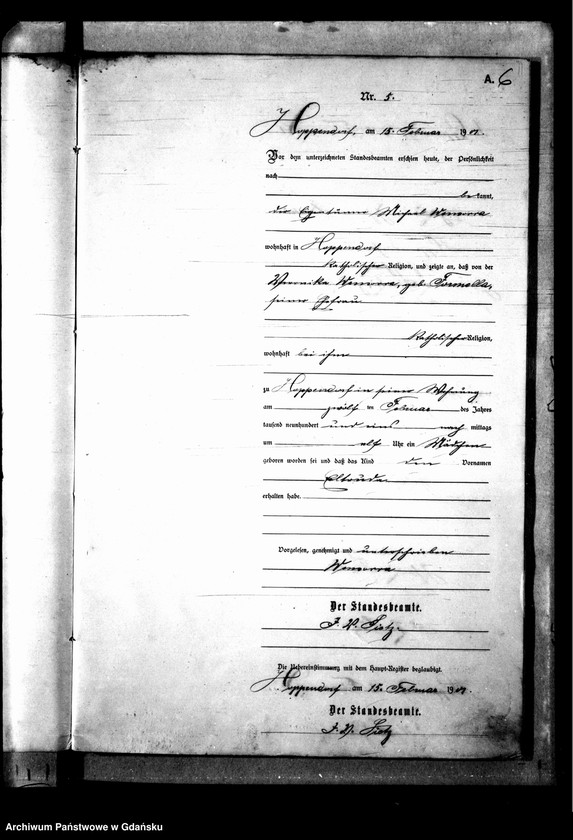 A. 6
Nr. 5.
Hoppendorf, am 15. Februar 1901.
Vor dem unterzeichneten Standesbeamten erschien heute, der Persönlichkeit
nach
bekannt,
der Eigentümer Michael
wohnhaft in Hoppendorf
katholischer Religion, und zeigte an, daß von der
Veronika geb. Formella,
seiner Ehefrau
katholischer Religion,
wohnhaft bei ihm
zu Hoppendorf in seiner Wohnung
am zwölf ten Februar des Jahres
tausend neunhundert und eins nach mittags
um elf Uhr ein Mädchen
geboren worden sei und daß das Kind den Vornamen
erhalten habe.
Vorgelesen, genehmigt und unterschrieben
Der Standesbeamte.
J. V.
Die Uebereinstimmung mit dem Haupt-Register beglaubigt.
Hoppendorf am 15. Februar 1901.
Der Standesbeamte.
J. V.
Archiwum Państwowe w Gdańsku